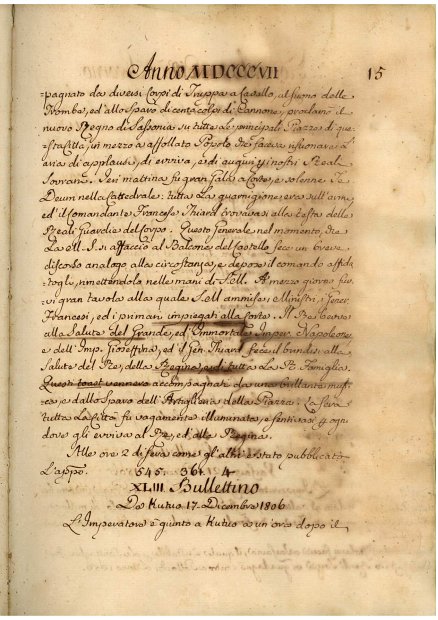 Anno MDCCCVII 15
=pagnato da diversi Corpi di Truppa a Cavallo, al suono delle
Trombe, ed allo Sparo di cento colpi di Cannone, proclamò il
nuovo Regno di Sassonia su tutte le principali Piazze di que=
sta Città, in mezzo a affollato Popolo che faceva risuonare l'
aria di applausi, di evviva, e di augurj a' nostri Reali
Sovrani. Jeri mattina fu gran Gala a Corte, e solenne Te
Deum nella Cattedrale: tutta la guarnigione era sull'armi,
ed il Comandante Francese Thiard trovavasi alla testa delle
Reali Guardie del Corpo. Questo Generale nel momento, che
la M. S. si affacciò al Balcone del Castello fece un breve
discorso analogo alla circostanza, e depose il comando affida=
togli, rimettendolo nelle mani di S. M. A mezzo giorno fuv=
vi gran tavola alla quale S. M. ammise i Ministri, i Gener.
Francesi, ed i primari impiegati alla Corte. Il Re bevette
alla Salute del Grande, ed Immortale Imper. Napoleone
e dell'Imp. Gioseffina, ed il Gen. Thiard fece il brindisi alla
Salute del Re, della Regina, e di tutta la R. Famiglia.
Questi toast vennero accompagnati da una brillante musi=
ca, e dallo Sparo dell'Artiglieria della Piazza. La Sera
tutta la Città fu vagamente illuminata, e sentivasi p ogni
dove gli evviva al Re, ed alla Regina.
Alle ore 2 di sera come gli altri è stato pubblicato
L'appo. 545. 361. 4
XLIII Bullettino
Da Kutno 17. Dicembre 1806
L'Imperatore è giunto a Kutno a un'ora dopo il